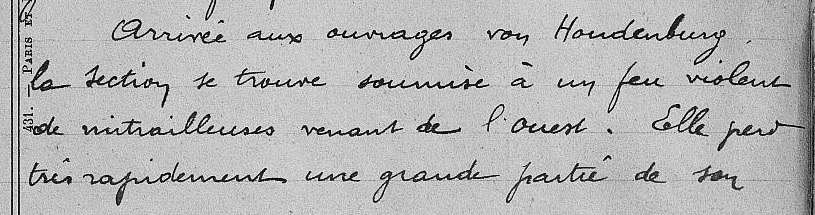 Arrivée aux ouvrages von Houdenburg.
la section se trouve soumise à un feu violent
de mitrailleuses venant de l'ouest. Elle perd
très rapidement une grande partie de son
431. PARIS ET